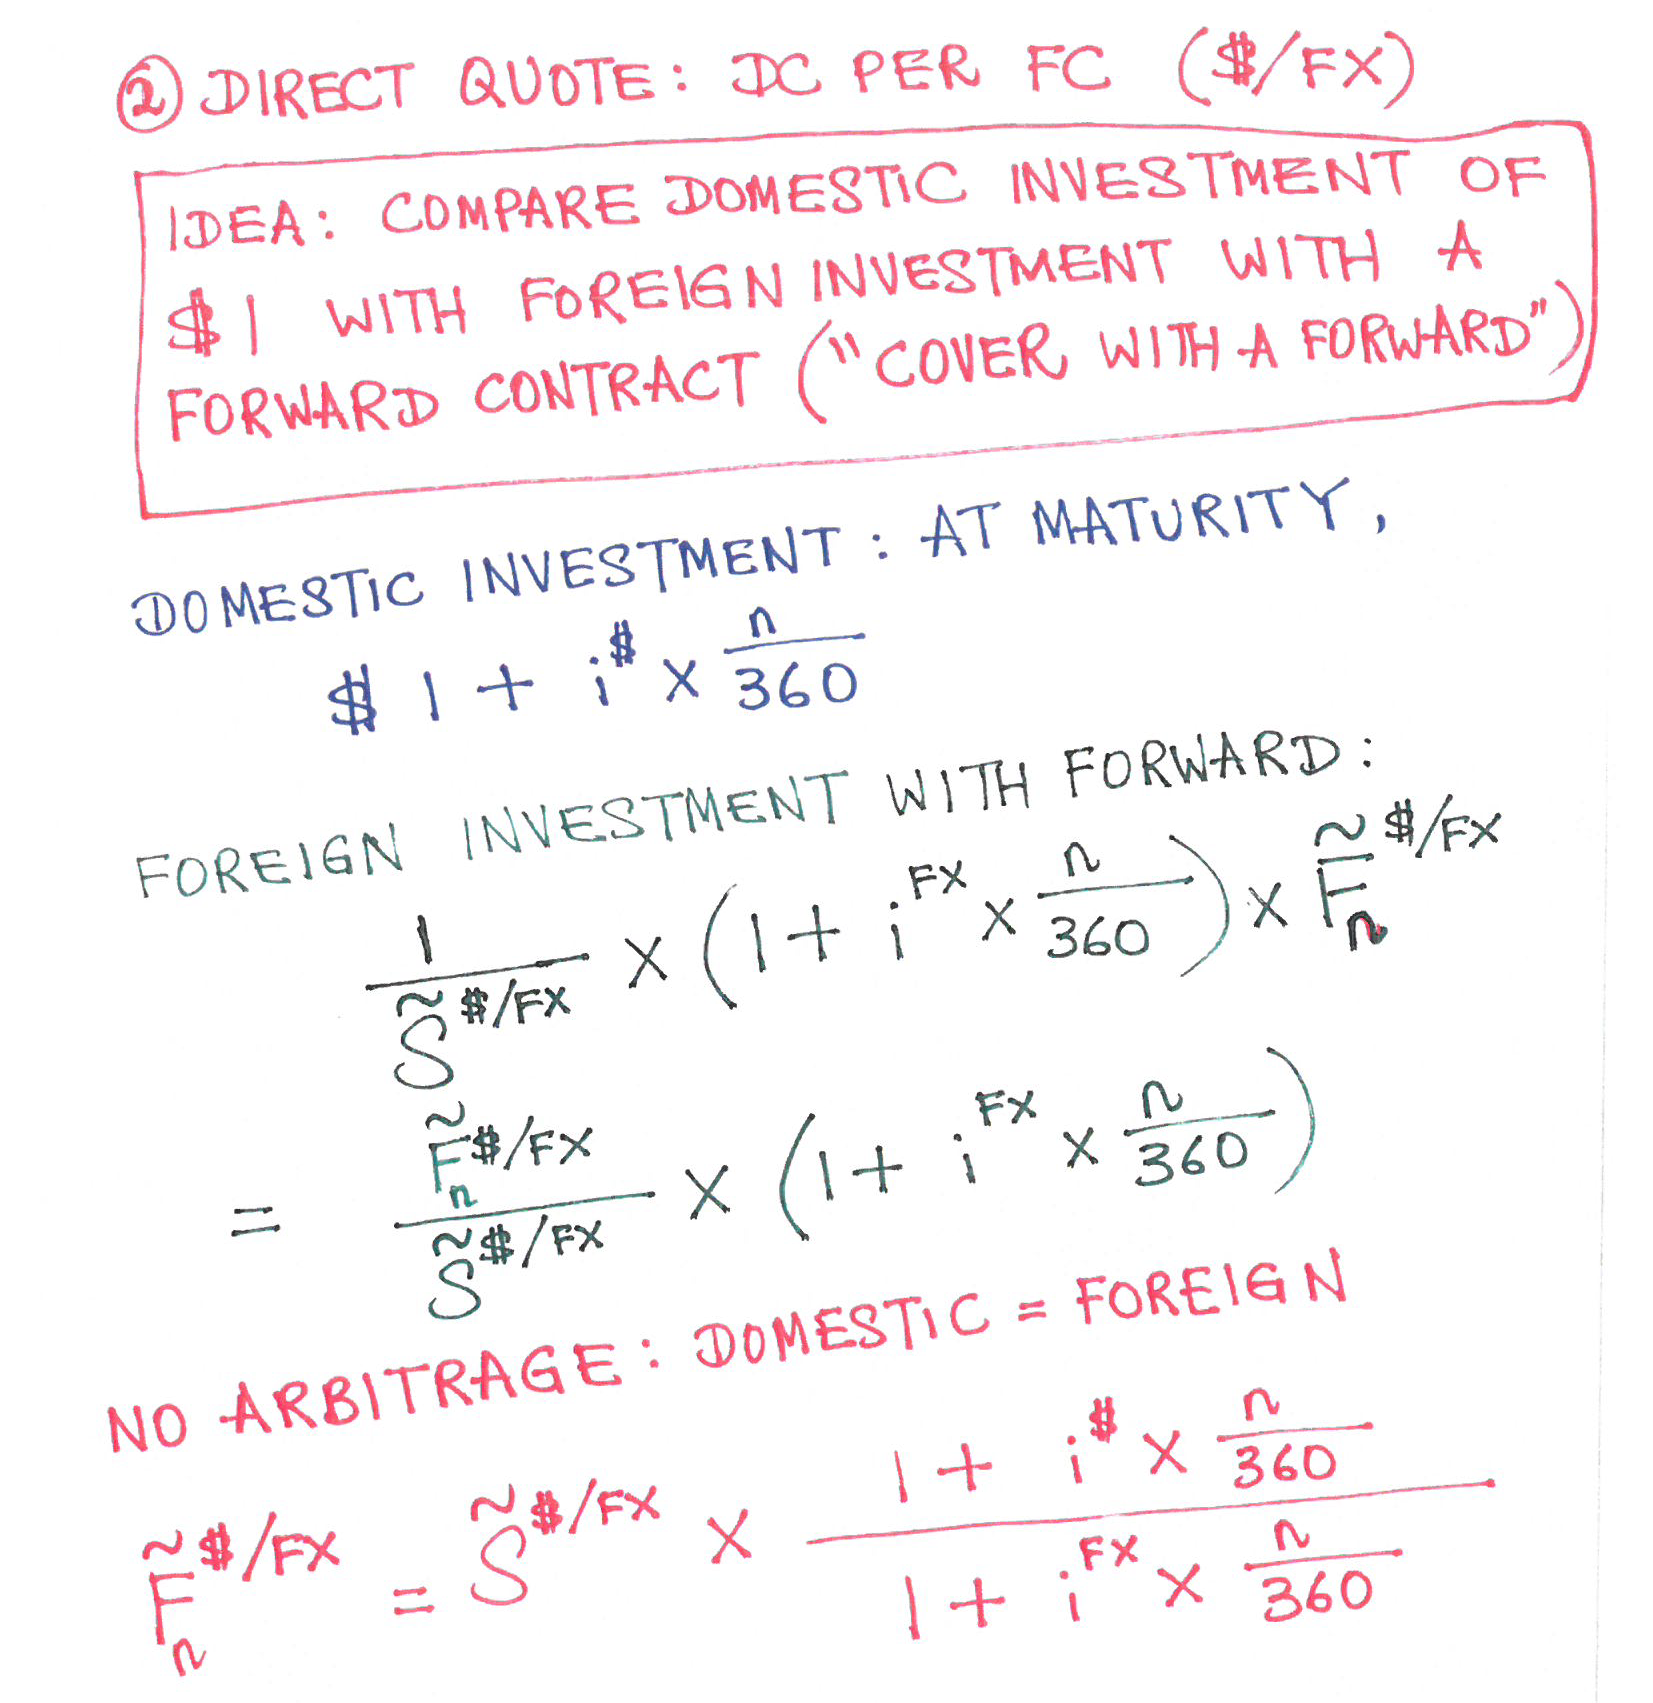 ② DIRECT QUOTE: DC PER FC ($/FX)
IDEA: COMPARE DOMESTIC INVESTMENT OF
$1 WITH FOREIGN INVESTMENT WITH A
FORWARD CONTRACT ("COVER WITH A FORWARD")
DOMESTIC INVESTMENT: AT MATURITY,
$ 1 + i^$ × n/360
FOREIGN INVESTMENT WITH FORWARD:
1/S̃^$/FX × (1 + i^FX × n/360) × F̃_n^$/FX
= F̃_n^$/FX / S̃^$/FX × (1 + i^FX × n/360)
NO ARBITRAGE: DOMESTIC = FOREIGN
F̃_n^$/FX = S̃^$/FX × (1 + i^$ × n/360) / (1 + i^FX × n/360)